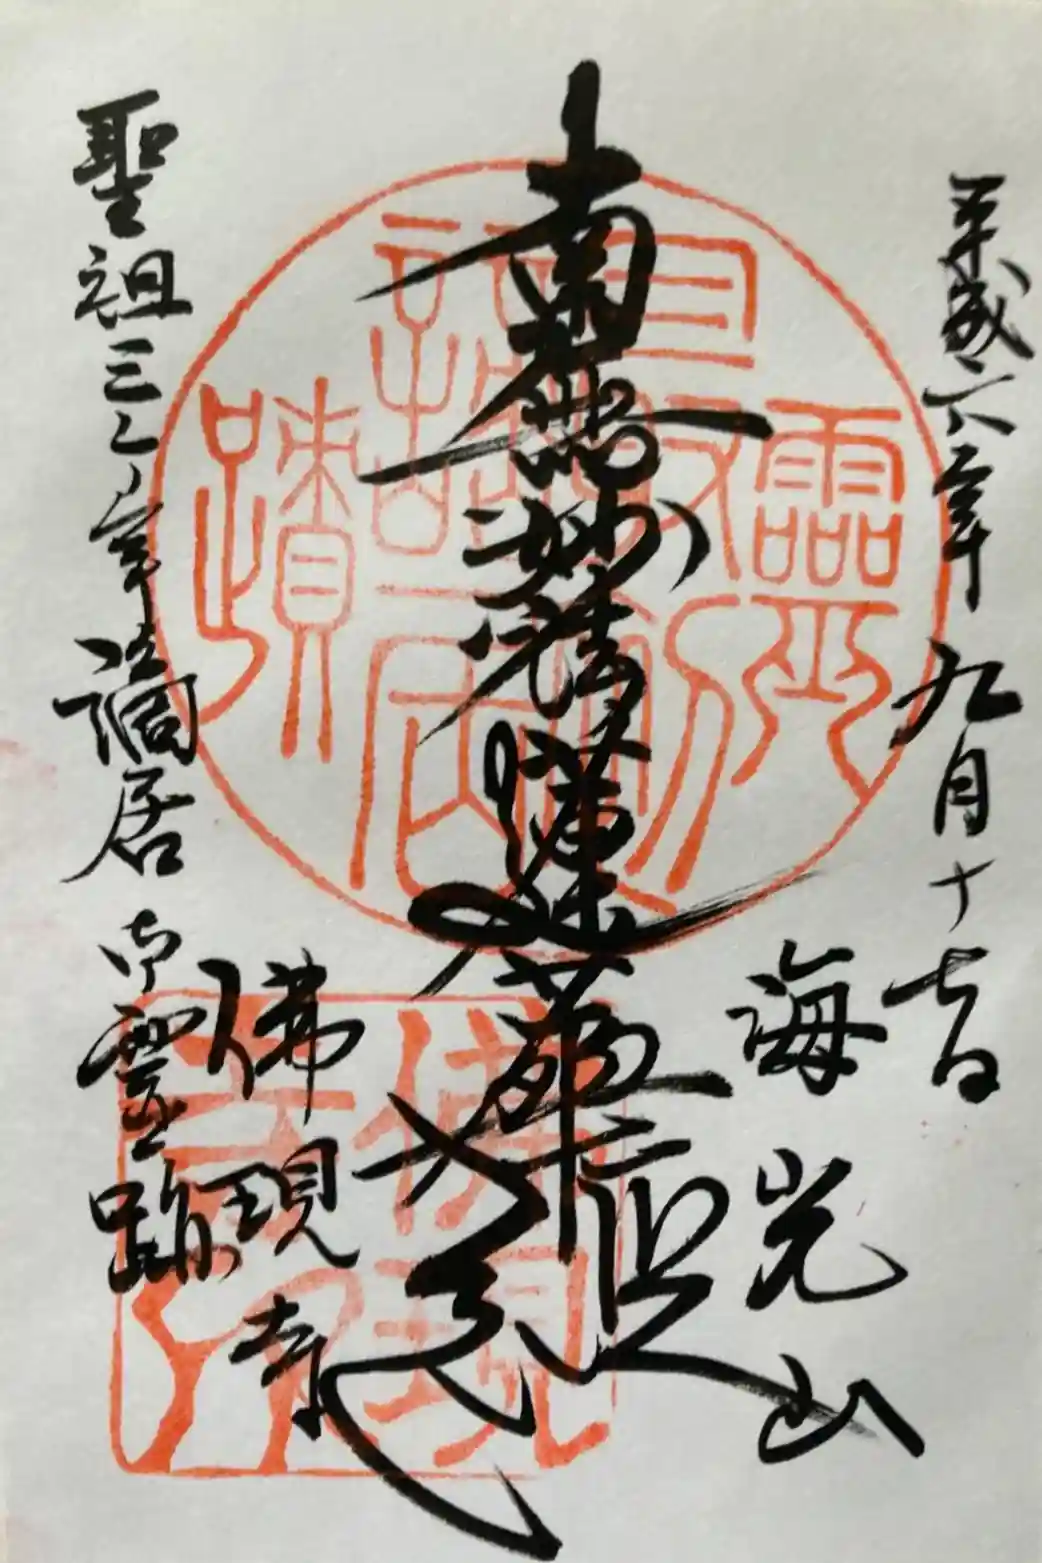 平成六年九月十七日
海光山
南無妙法蓮華経
佛現寺
聖祖三ヶ年謫居御霊跡
佛現
寺印